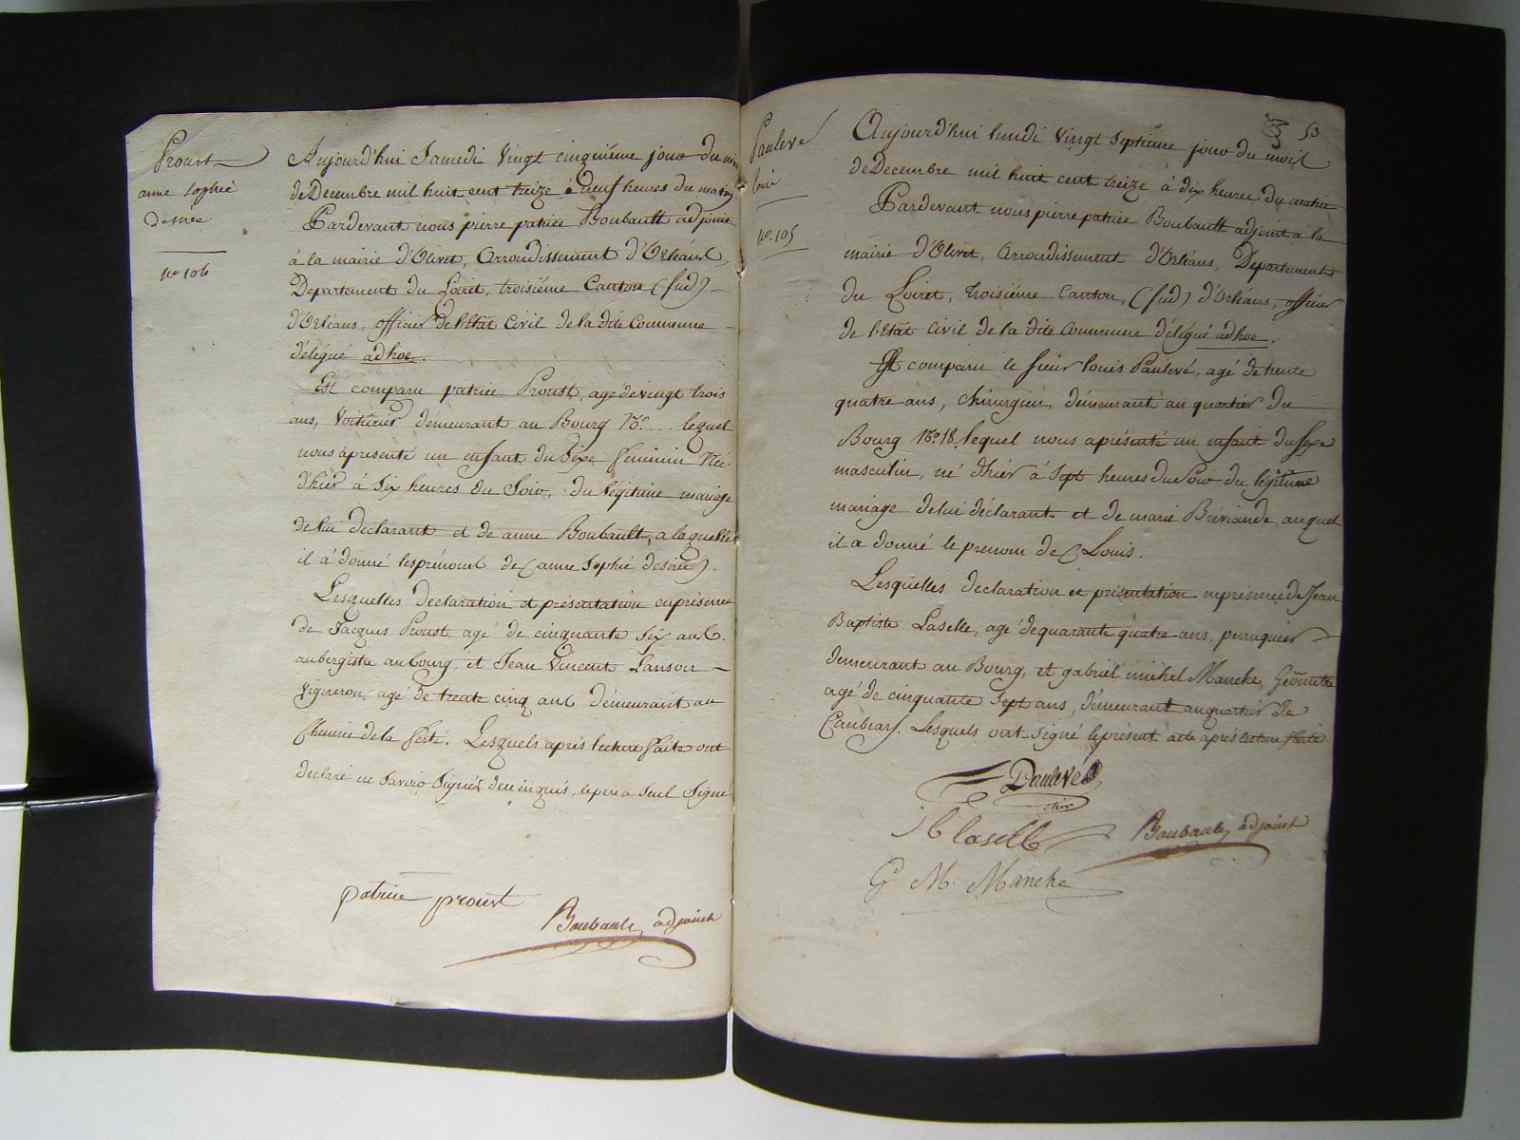 Proust
anne sophie
desirée
no 106
Aujourd'hui Samedi Vingt cinquiéme jour du
de Decembre mil huit cent treize à neuf heures du matin
Pardevant nous pierre patrice Boubault adjoint
à la mairie d'Olivet, Arrondissement d'Orléans,
Departement du Loiret, troisiéme Canton (sud)
d'Orléans, officier de l'Etat Civil de la dite Commune
délégué adhoc.
Est comparu patrice Proust, age de vingt trois
ans, Voiturier demeurant au Bourg No. lequel
nous a presenté un enfant du Sexe feminin Née
d'hier à Six heures du Soir, du légitime mariage
de lui declarant et de anne Boubault, a laquelle
il a donné les prénoms de (anne Sophie desirée).
Lesquelles declaration et présentation en présence
de Jacques Proust agé de cinquante six ans.
aubergiste au bourg, et Jean Vincent Sanson
Vigneron, agé de trente cinq ans démeurant au
Chemin de la ferté. Lesquels après lecture faite ont
declaré ne Savoir Signer de ce enquis, le pere a Seul Signé
patrice proust
Boubault, adjoint
53
Paulevé
loüis
No. 105
Aujourd'hui lundi Vingt Septième jour du mois
de Decembre mil huit cent treize à dix heures du matin
Pardevant nous pierre patrice Boubault adjoint a la
mairie d'Olivet, Arrondissement d'Orléans, Departement
du Loiret, troisiéme Canton, (sud) d'Orléans, officier
de l'Etat Civil de la dite Commune délégué adhoc.
Est comparu le sieur louis Paulevé, agé de trente
quatre ans, chirurgien, démeurant au quartier du
Bourg No. 18. lequel nous a présenté un enfant du sexe
masculin, né d'hier à Sept heures du Soir du légitime
mariage de lui déclarant et de marie Bréviande, auquel
il a donné le prenom de Louis.
Lesquelles declaration et présentation en présence de Jean
Baptiste Laselle, agé de quarante quatre ans, peruquier
demeurant au Bourg, et gabriel michel Manche, Géometre
agé de cinquante Sept ans, démeurant au quartier de
Caubray. Lesquels ont Signé le présent acte après lecture faite
Paulevé
chir
JB laselle
Boubault, adjoint
G M. Manche